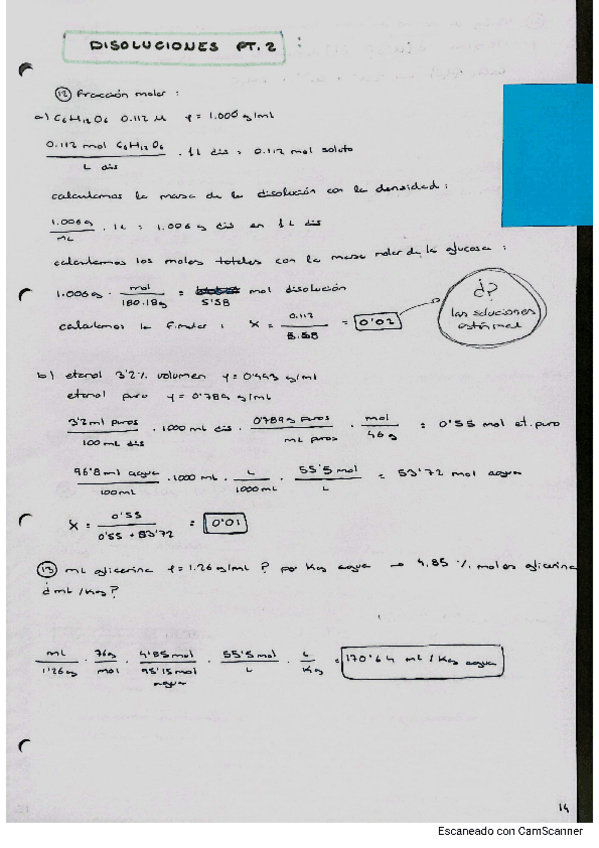 DISOLUCIONES PT. 2 :
12 Fracción molar :
a) C6H12O6 0.112 M ρ = 1.006 g/ml
0.112 mol C6H12O6 / L dis · 1L dis = 0.112 mol soluto
calculamos la masa de la disolución con la densidad :
1.006 g / mL · 1L = 1.006 g dis en 1 L dis
calculamos los moles totales con la masa molar de la glucosa :
1.006 g · mol / 180.18g = 5'58 mol disolución
calculamos la F.molar : X = 0.112 / 5.58 = 0'02
¿?
las soluciones
están mal
b) etanol 3'2% volumen ρ = 0'993 g/ml
etanol puro ρ = 0'789 g/ml
3'2 ml puros / 100 mL dis · 1000 mL dis · 0'789 g puros / mL puros · mol / 46 g = 0'55 mol et. puro
96'8 ml agua / 100 mL · 1000 mL · L / 1000 mL · 55'5 mol / L = 53'72 mol agua
X = 0'55 / 0'55 + 53'72 = 0'01
13 mL glicerina ρ = 1.26 g/mL ? por Kg agua → 4.85 % moles glicerina
¿ mL / Kg ?
mL / 1'26 g · 76g / mol · 4'85 mol / 95'15 mol agua · 55'5 mol / L · L / Kg = 170'64 mL / Kg agua
14
Escaneado con CamScanner